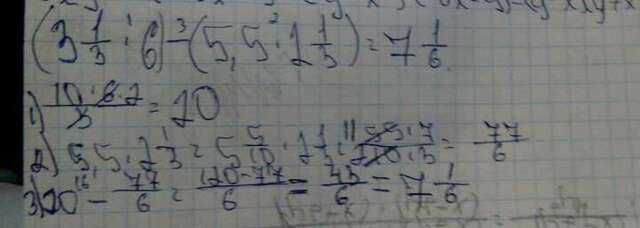 (3 1/3 · 6) - (5,5 · 2 1/3) = 7 1/6
1) 10 · 6 · 2/3 = 20
2) 5,5 · 2 1/3 = 5 5/10 · 2 1/3 = 55 · 7/10 · 3 = 77/6
3) 20 - 77/6 = 120-77/6 = 43/6 = 7 1/6